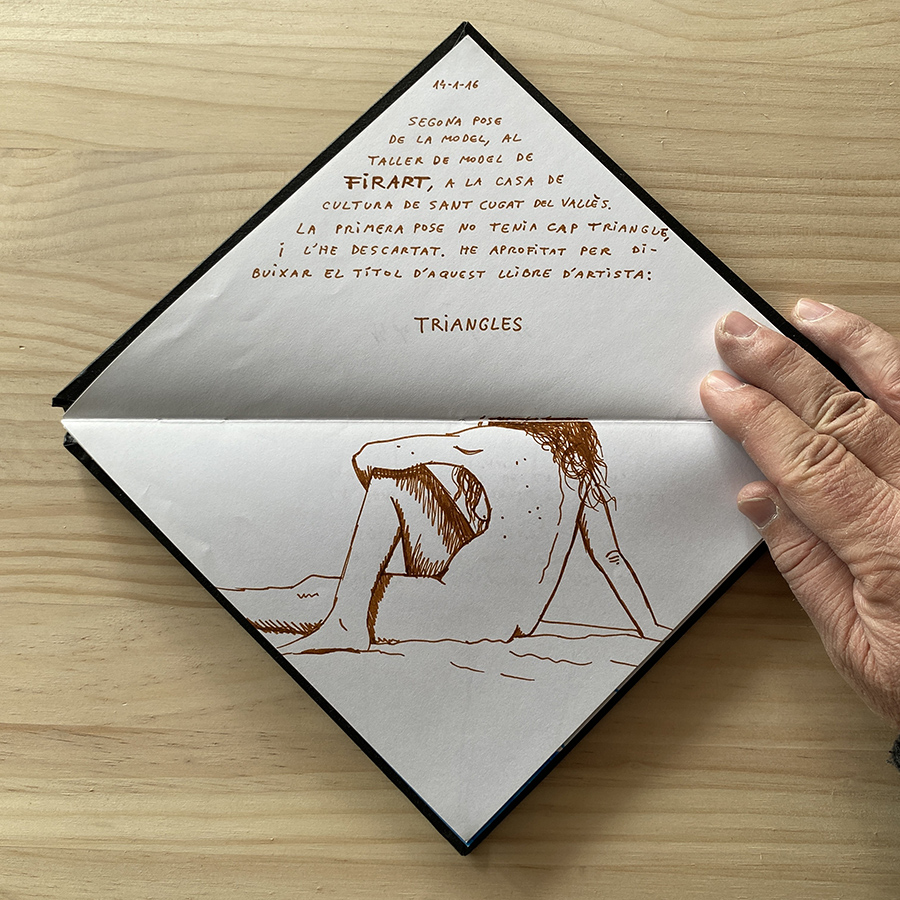 14-1-16
SEGONA POSE
DE LA MODEL, AL
TALLER DE MODEL DE
FIRART, A LA CASA DE
CULTURA DE SANT CUGAT DEL VALLÈS.
LA PRIMERA POSE NO TENIA CAP TRIANGLE,
I L'HE DESCARTAT. HE APROFITAT PER DI-
BUIXAR EL TÍTOL D'AQUEST LLIBRE D'ARTISTA:
TRIANGLES